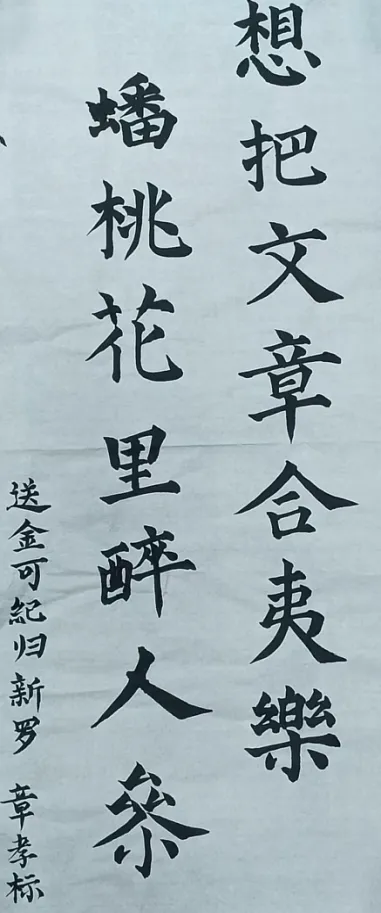 想把文章合夷樂
蟠桃花里醉人参
送金可紀归新罗 章孝标